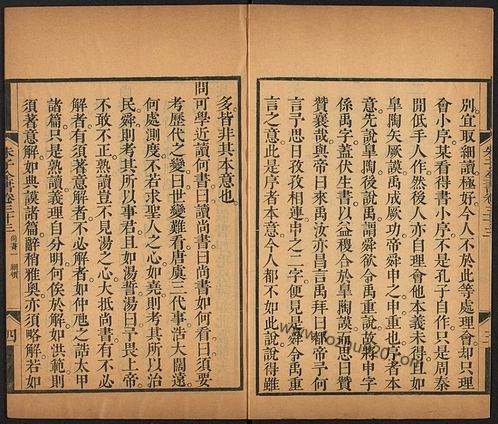 別宜取細讀極好今人不於此等處理會却只理
會小序某看得書小序不是孔子自作只是周秦
間低手人作然後人亦自理會他本義未得且如
皋陶矢厥謨禹成厥功帝舜申之申重也序者本
意先說皋陶後說禹謂舜欲令禹重說故將申字
係禹字蓋伏生書以益稷合於皋陶謨而思曰贊
贊襄哉與帝曰來禹汝亦昌言禹拜曰都帝予何
言予思日孜孜相連申之二字便見是舜令禹重
言之意此是序者本意今人都不如此說說得雖
多皆非其本意也
問可學近讀何書曰讀尚書曰尚書如何看曰須要
考歷代之變曰世變難看唐虞三代事浩大闊遠
何處測度不若求聖人之心如堯則考其所以治
民舜則考其所以事君且如湯誓湯曰予畏上帝
不敢不正熟讀豈不見湯之心大抵尚書有不必
解者有須著意解者不必解者如仲虺之誥太甲
諸篇只是熟讀義理自分明何俟於解如洪範則
須著意解如典謨諸篇辭稍雅奧亦須略解若如
朱子全書卷三十三
尚書一 綱領
四